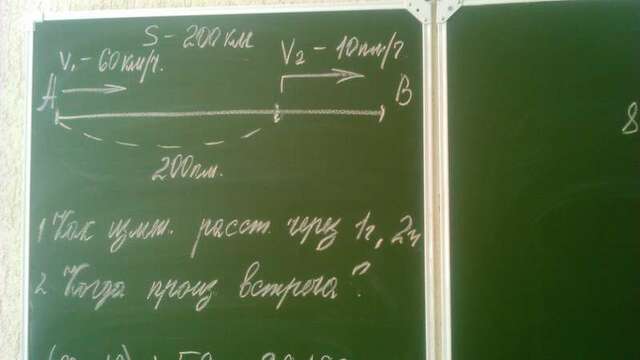 S - 200 км
V₁ - 60 км/ч. V₂ - 10 км/ч.
A B
200 км.
1. Как изм. расст. через 1ч, 2ч
2. Когда произ встреча?
8